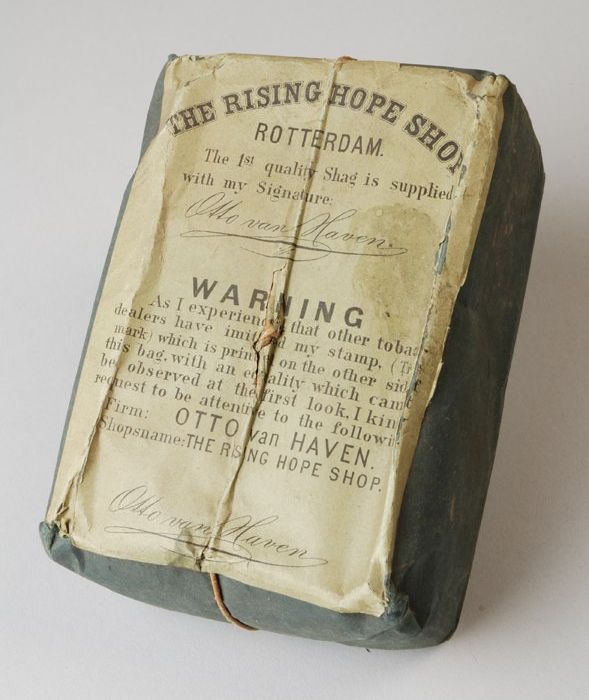 THE RISING HOPE SHOP
ROTTERDAM.
The 1st quality Shag is supplied
with my Signature:
Otto van Haven.
WARNING
As I experience that other toba
dealers have imi d my stamp, (Tr
mark) which is prin on the other side
this bag, with an e ality which can
be observed at the first look, I kin
request to be attentive to the followin
Firm: OTTO van HAVEN.
Shopsname: THE RISING HOPE SHOP.
Otto van Haven